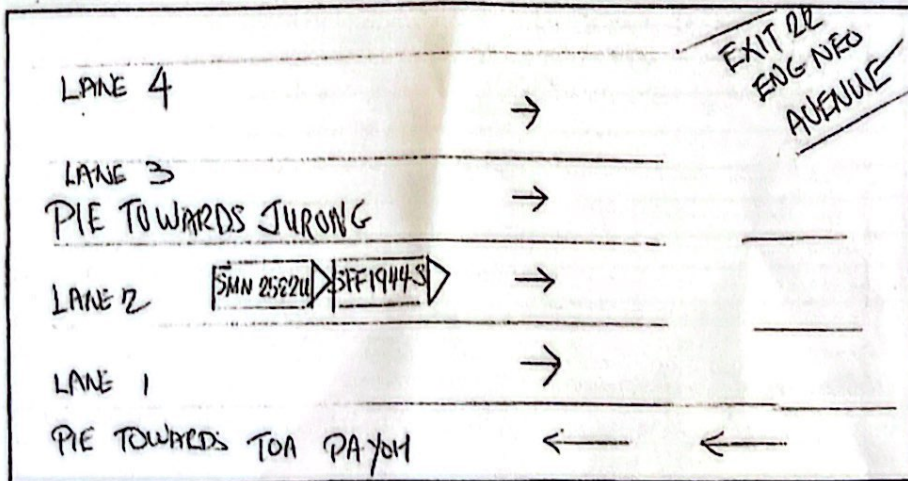 EXIT 22
ENG NEO
AVENUE
LANE 4
LANE 3
PIE TOWARDS JURONG
LANE 2
SMN 2522U SFF1944S
LANE 1
PIE TOWARDS TOA PAYOH